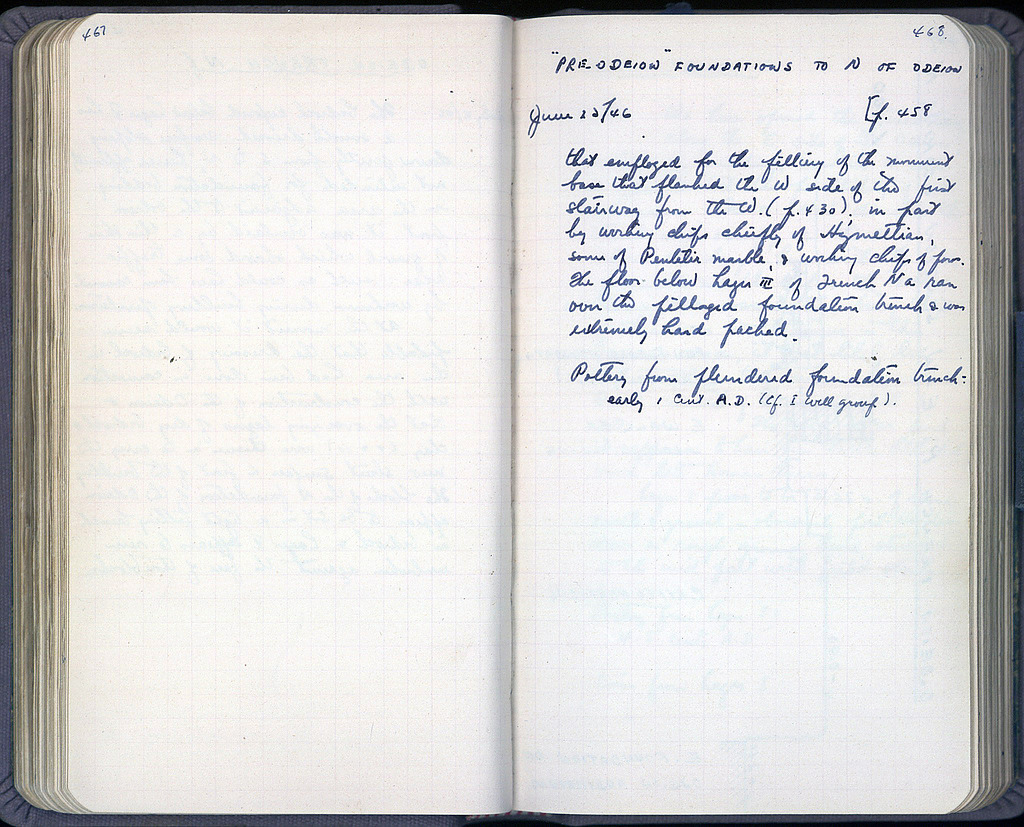 467
468.
"PRE-ODEION" FOUNDATIONS TO N OF ODEION
June 22/46 [p. 458
that employed for the filling of the monument
base that flanked the W side of the first
stairway from the W. (p. 430); in part
by working chips chiefly of Hymettian,
some of Pentelic marble, & working chips of poros.
The floor below Layer III of Trench Na ran
over the pillaged foundation trench & was
extremely hard packed.
Pottery from plundered foundation trench:
early 1 cent. A.D. (cf. I well group).